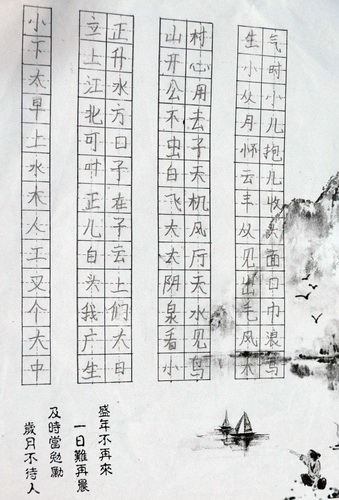 小
下
太
早
上
水
木
人
工
又
个
大
中
立正
上升
江水
北方
可口
叶子
正在
儿子
白云
头上
我们
广大
生日
山村
开心
公用
不去
虫子
白天
飞机
大风
大厅
阴天
泉水
看见
小鸟
生气
小时
从小
月儿
怀抱
云儿
丰收
从头
见面
出口
毛巾
风浪
木
盛年不再來
一日難再晨
及時當勉勵
歲月不待人